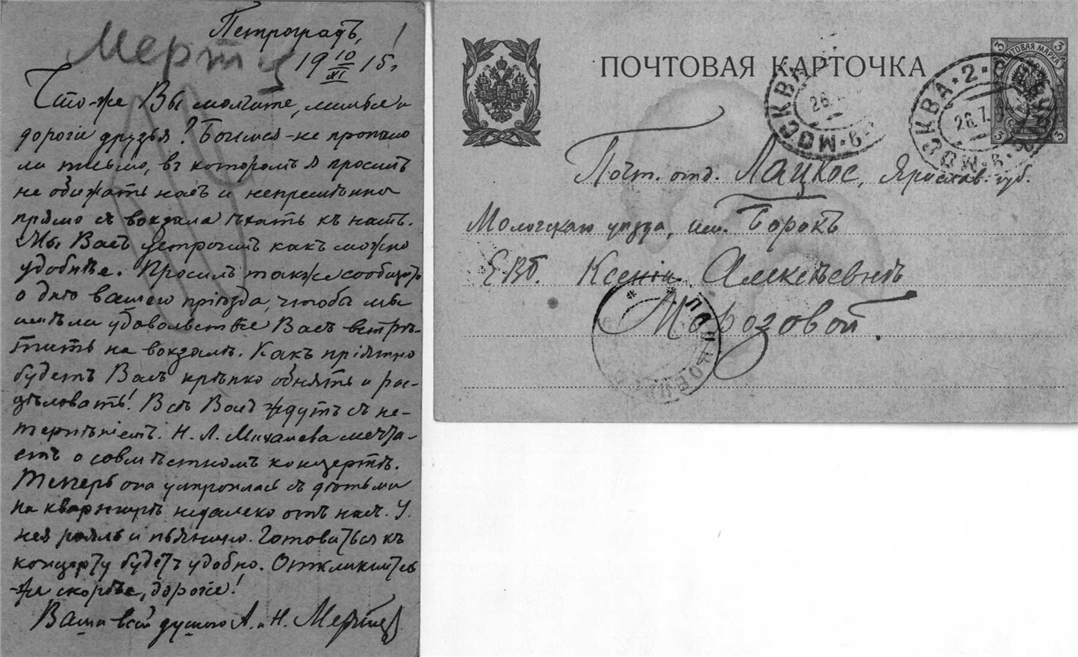 Петроградъ,
Мертц
19 10/XI 15 г.
Что-же Вы молчите, милые и
дорогіе друзья? Боимся-не пропало
ли письмо, въ которомъ я просилъ
не обижать насъ и непремѣнно
прямо съ вокзала ѣхать къ намъ.
Мы Васъ устроимъ какъ можно
удобнѣе. Просилъ также сообщить
о днѣ вашего пріѣзда, чтобы мы
имѣли удовольствіе Васъ встрѣ-
тить на вокзалѣ. Какъ пріятно
будетъ Васъ крѣпко обнять и рас-
цѣловать! Всѣ Васъ ждутъ съ не-
терпѣніемъ. Н. Л. мечта-
етъ о совмѣстномъ концертѣ.
Теперь она устроилась съ дѣтьми
на квартирѣ недалеко отъ насъ. У
нея рояль и пьянино. Готовиться къ
концерту будетъ удобно. Откликнитесь
же скорѣе, дорогіе!
Ваши всей душою А. и Н.
ПОЧТОВАЯ КАРТОЧКА
ПОЧТОВАЯ МАРКА
3 3
МОСКВА
26.
МОСКВА 2-
26.7.
Почт. отд. Лацкое, Ярослав. губ.
Мологскаго уѣзда, им. Борокъ
ЕВб. Ксеніи Алексѣевнѣ
Морозовой